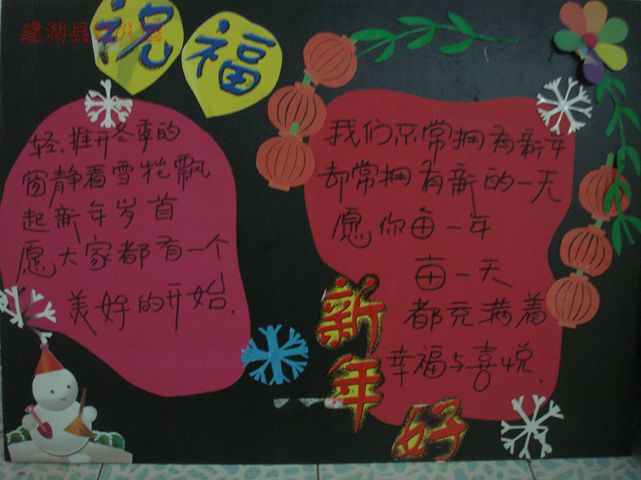 祝福
轻轻推开冬季的
窗静看雪花飘
起新年岁首
愿大家都有一个
美好的开始.
我们不常拥有新年
却常拥有新的一天
愿你每一年
每一天
都充满着
幸福与喜悦.
新年好
建湖县